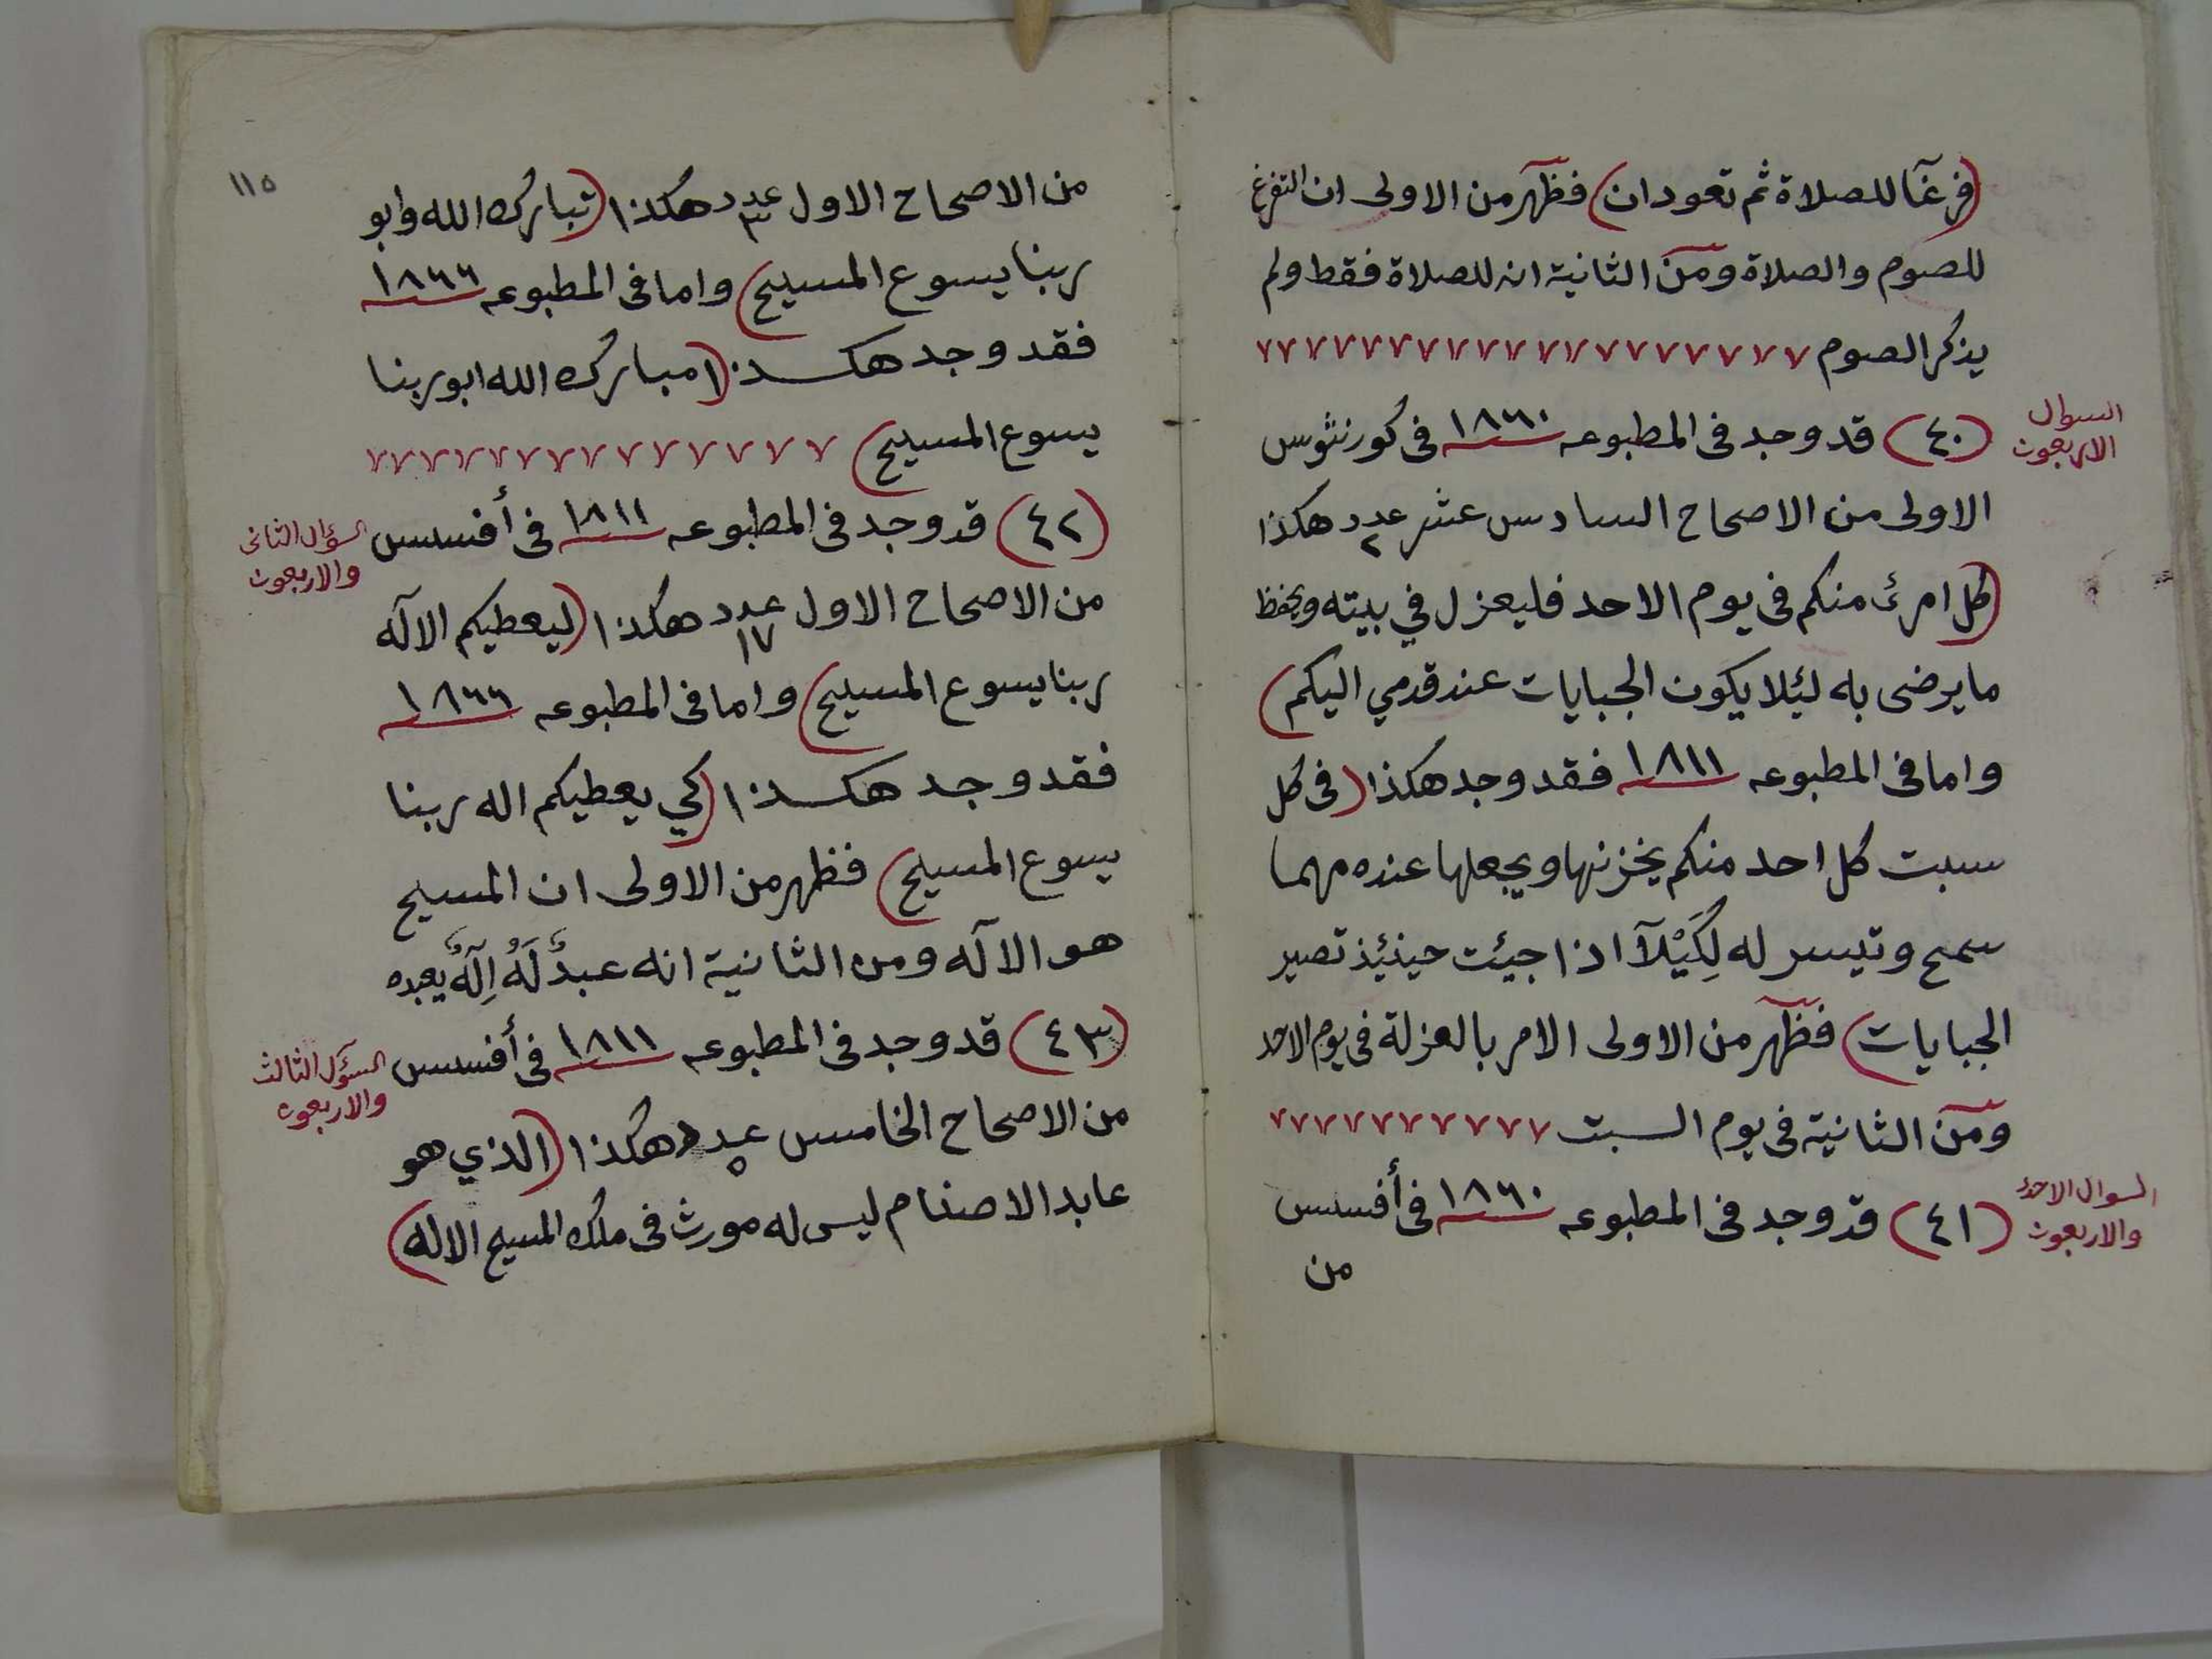 (فرغا للصلاة ثم تعودان) فظهر من الاولى ان التفرغ
للصوم والصلاة ومن الثانية انه للصلاة فقط ولم
يذكر الصوم
السوال
الاربعون
(٤٠) قد وجد فى المطبوعه ١٨٦٠ فى كورنثوس
الاولى من الاصحاح السادس عشر عدد ٢ هكذا
(كل امرئ منكم فى يوم الاحد فليعزل في بيته ويحفظ
ما يرضى به لئلا يكون الجبايات عند قدمي اليكم)
واما فى المطبوعه ١٨١١ فقد وجد هكذا (فى كل
سبت كل احد منكم يخزنها ويجعلها عنده مهما
سمح وتيسر له لِكَيْلَا اذا جيئت حينئيذ تصير
الجبايات) فظهر من الاولى الامر بالعزلة فى يوم الاحد
ومن الثانية فى يوم السبت
السوال الاحد
والاربعون
(٤١) قد وجد فى المطبوعه ١٨٦٠ فى أفسس
من
١١٥
من الاصحاح الاول عدد ٣ هكذا (تبارك الله وابو
ربنا يسوع المسيح) واما فى المطبوعه ١٨٦٦
فقد وجد هكذا (مبارك الله ابو ربنا
يسوع المسيح)
(٤٢) قد وجد فى المطبوعه ١٨١١ فى أفسس
السؤال الثانى
والاربعون
من الاصحاح الاول عدد ١٧ هكذا (ليعطيكم الآله
ربنا يسوع المسيح) واما فى المطبوعه ١٨٦٦
فقد وجد هكذا (كي يعطيكم اله ربنا
يسوع المسيح) فظهر من الاولى ان المسيح
هو الآله ومن الثانية انه عبدٌ لَهُ اِلَهٌ يعبده
(٤٣) قد وجد فى المطبوعه ١٨١١ فى أفسس
السؤال الثالث
والاربعون
من الاصحاح الخامس عدد ٥ هكذا (الذي هو
عابد الاصنام ليس له مورث فى ملك المسيح الاله)